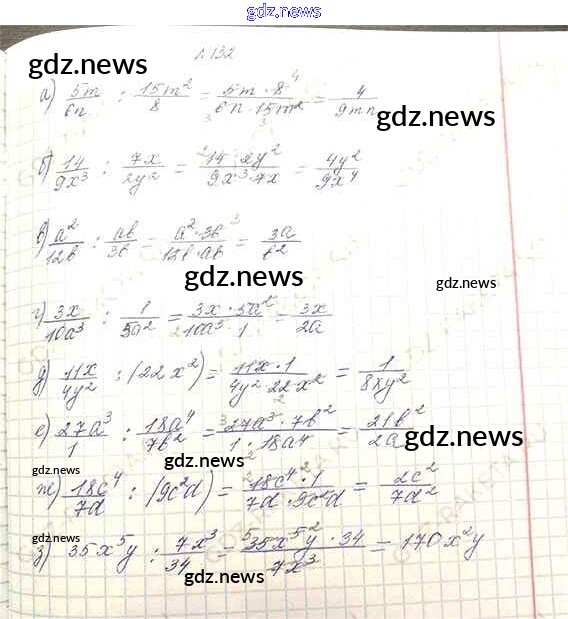 gdz.news
№132
gdz.news
а) 5m/6n : 15m²/8 = 5m · 8 ⁴/₃ 6n · 15m² ₃ = 4/9mn
gdz.news
б) 14/9x³ : 7x/2y² = 14 · 2y²/9x³ · 7x = 4y²/9x⁴
в) a²/12b : ab/3b = a² · 3b/12b · ab = 3a/
gdz.news
gdz.news
г) 3x/10a³ : 1/5a² = 3x · 5a²/10a³ · 1 = 3x/2a
д) 11x/4y² : (22x²) = 11x · 1/4y² · 22x² = 1/8xy²
е) 27a³/1 : 18a⁴/7b² = 27a³ · 7b²/1 · 18a⁴ = 21b²/2a
gdz.news
gdz.news
ж) 18c⁴/7d : (9c²d) = 18c⁴ ² · 1/7d · 9c²d = 2c²/7d²
з) 35x⁵y : 7x³/34 = ⁵35x⁵ ²y · 34/7x³ = 170x²y
gdz.news
gdz.news